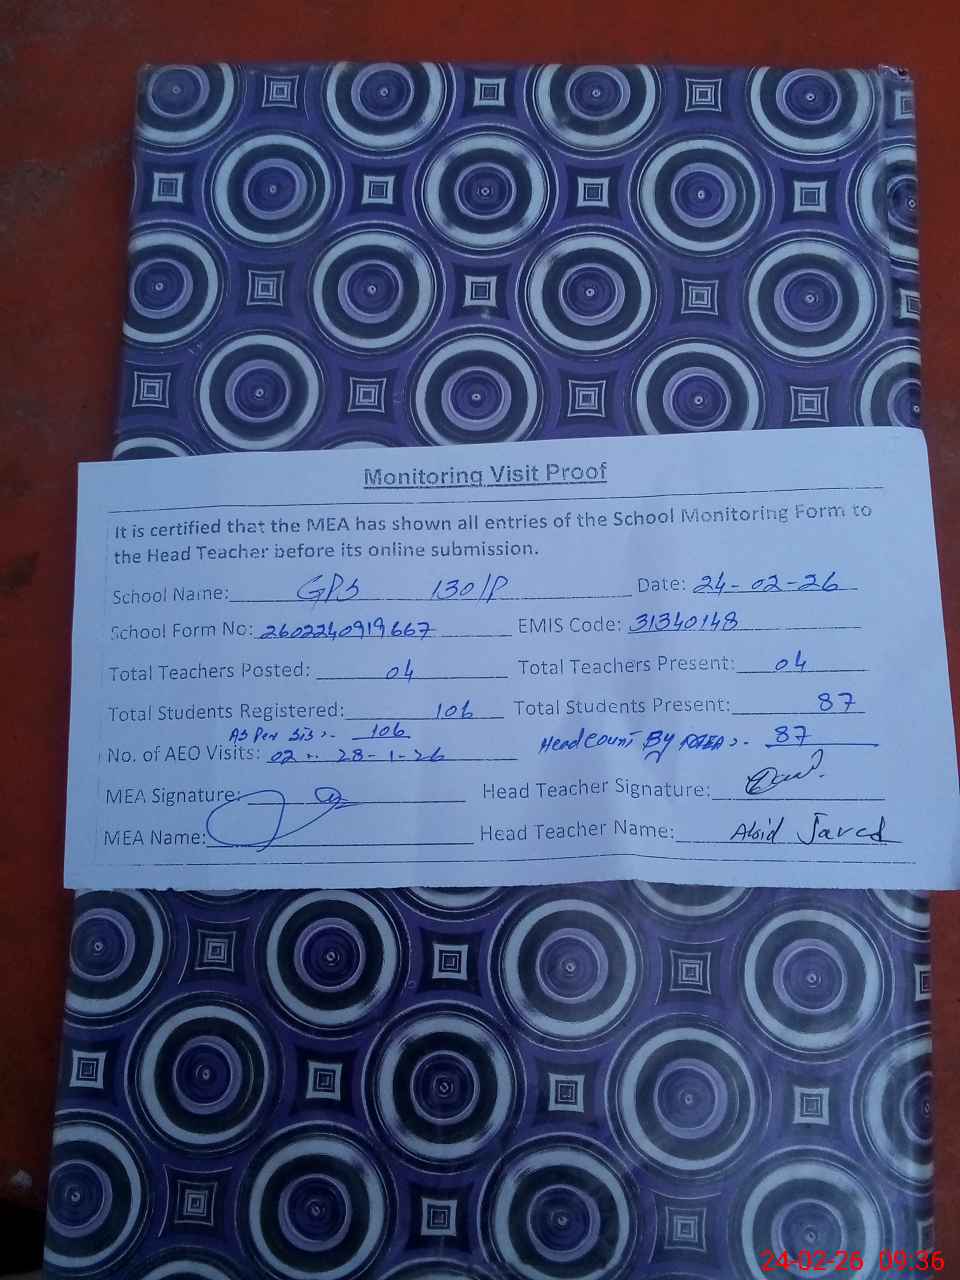 Monitoring Visit Proof
It is certified that the MEA has shown all entries of the School Monitoring Form to
the Head Teacher before its online submission.
School Name: GPS 130/P Date: 24-02-26
School Form No: 2602240919667 EMIS Code: 31340148
Total Teachers Posted: 04 Total Teachers Present: 04
Total Students Registered: 106 Total Students Present: 87
As Per SIS :- 106 Headcount By MEA :- 87
No. of AEO Visits: 02 28-1-26
MEA Signature: Head Teacher Signature:
MEA Name: Head Teacher Name: Abid Javed
24-02-26 09.36